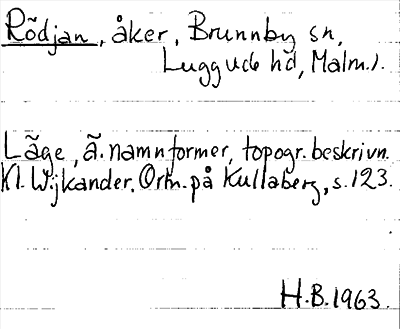 Rödjan, åker, Brunnby sn,
Luggude hd, Malm.l.
Läge, ä. namnformer, topogr. beskrivn.
Kl. Wijkander, Ortn. på Kullaberg, s. 123.
H.B. 1963.